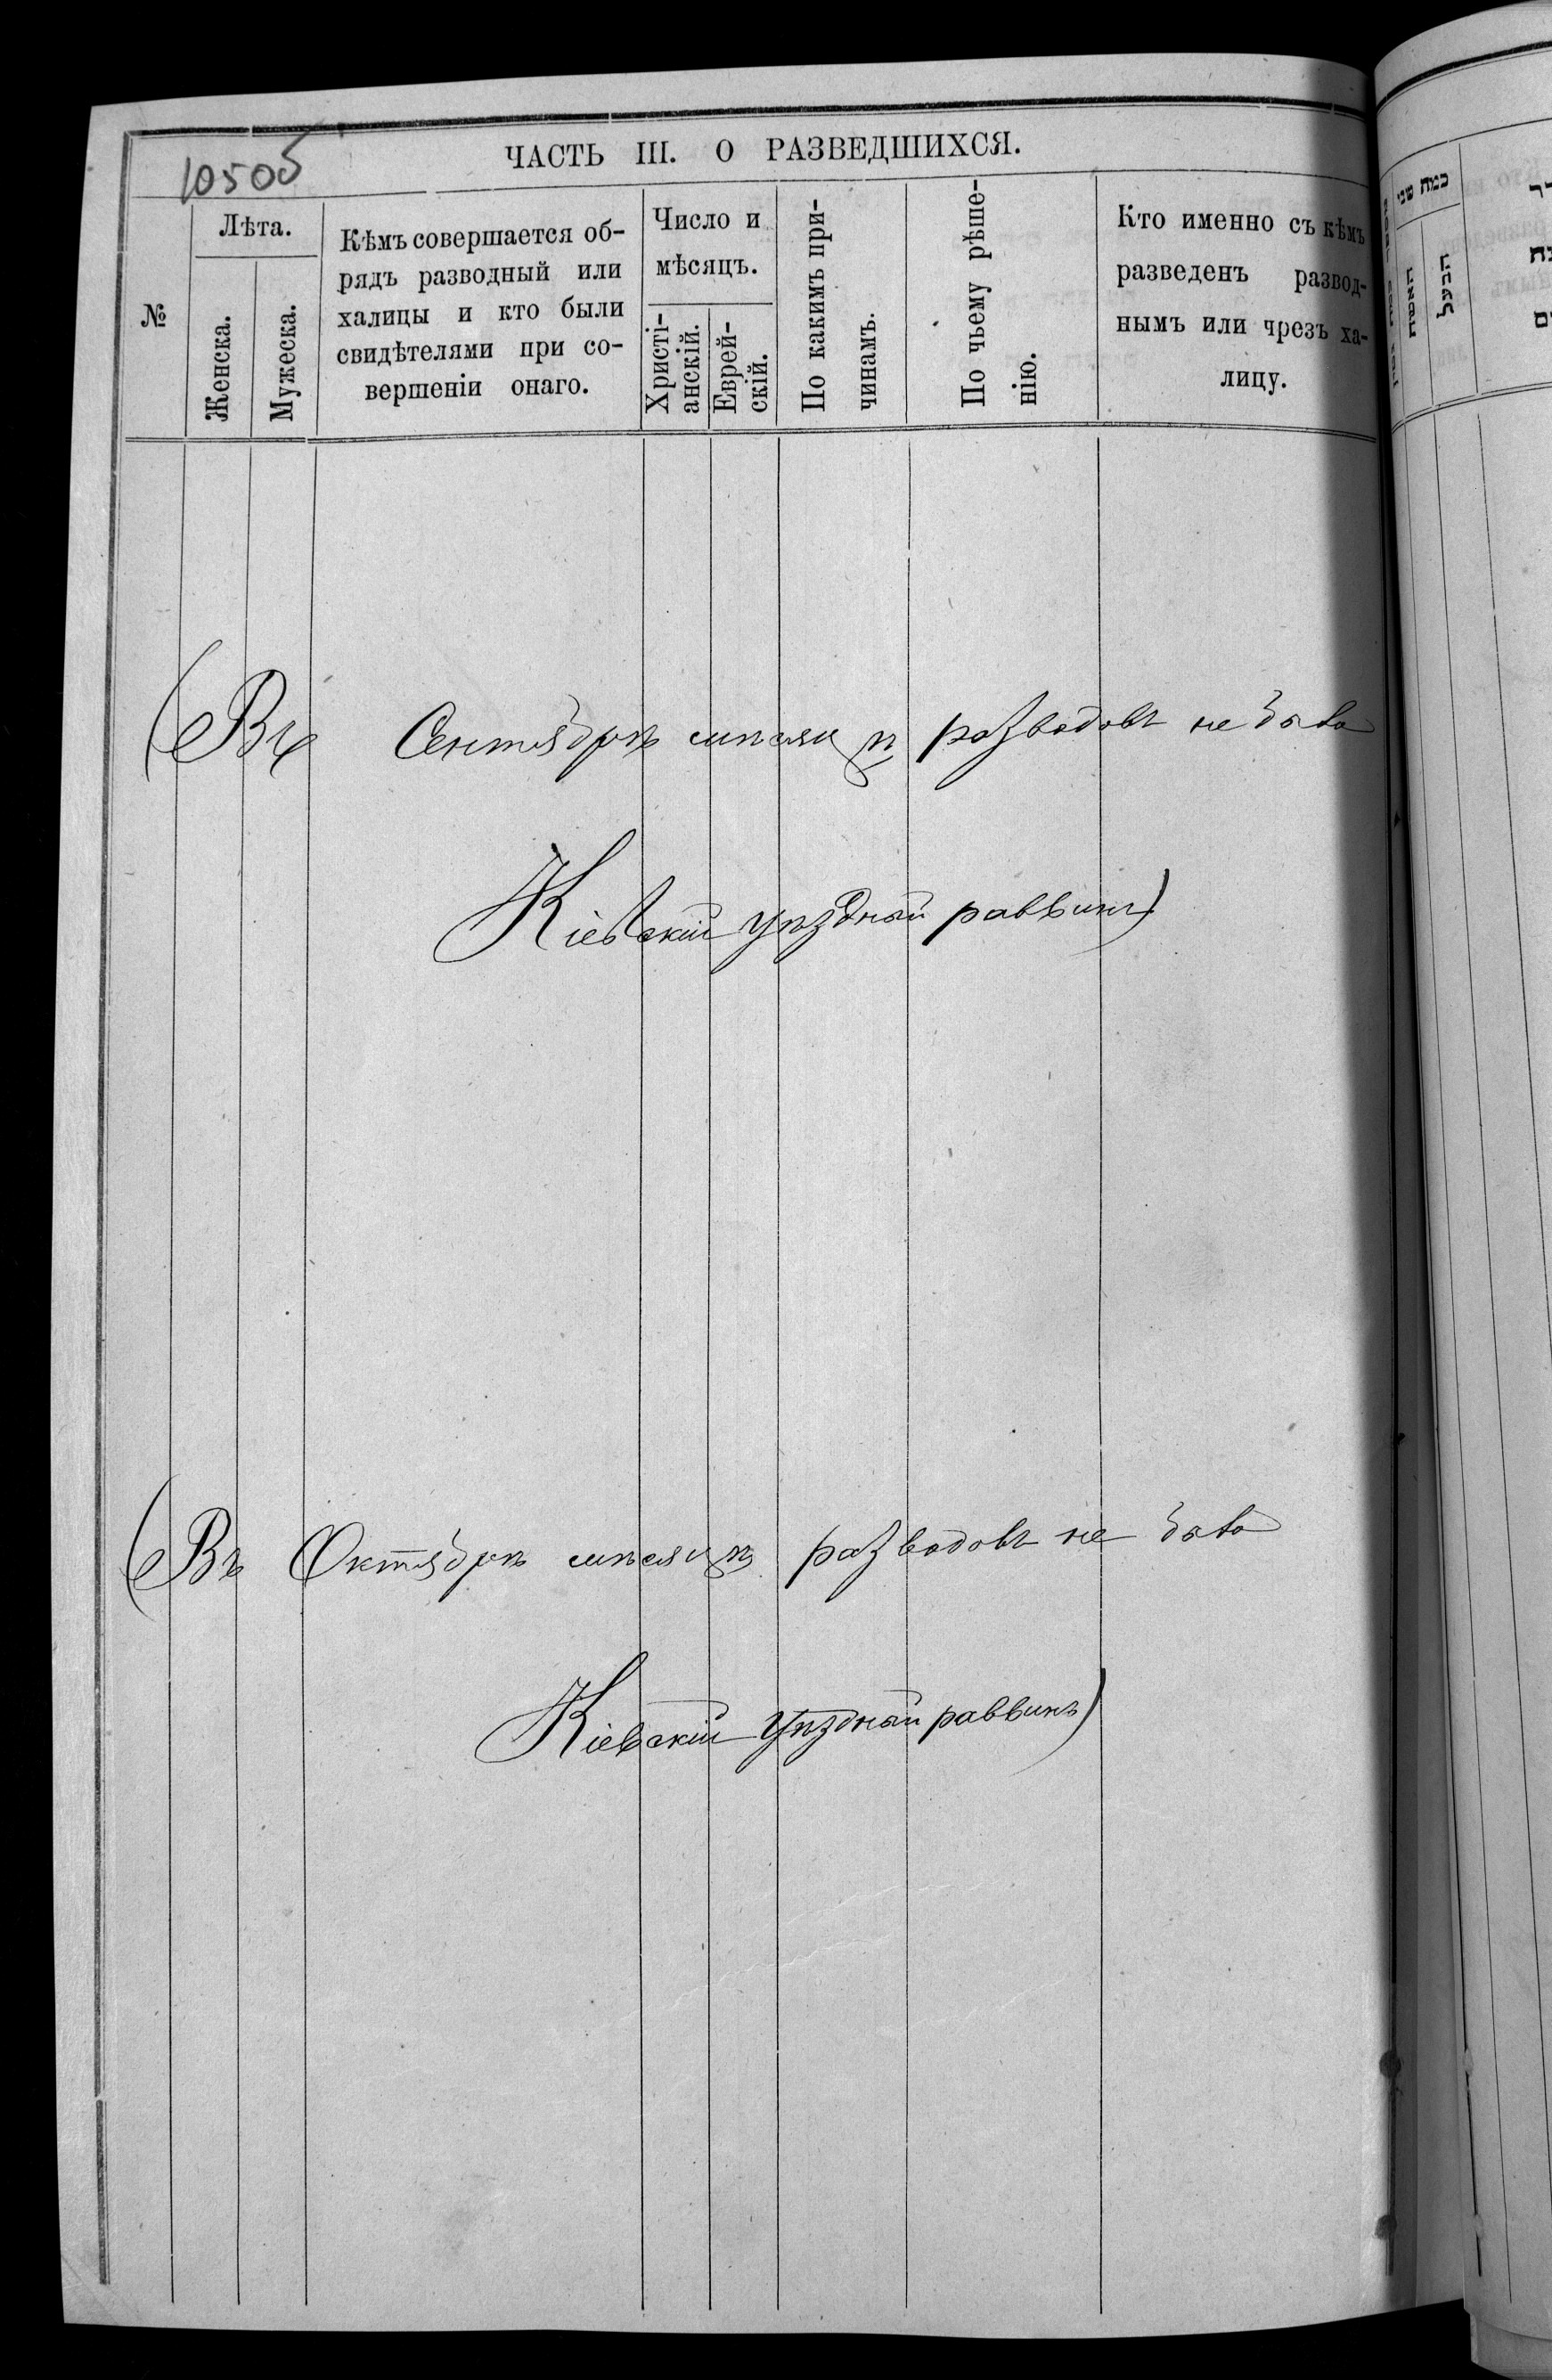 10505
ЧАСТЬ III. О РАЗВЕДШИХСЯ.
№
Лѣта.
Женска.
Мужеска.
Кѣмъ совершается об-
рядъ разводный или
халицы и кто были
свидѣтелями при со-
вершеніи онаго.
Число и
мѣсяцъ.
Христі-
анскій.
Еврей-
скій.
По какимъ при-
чинамъ.
По чьему рѣше-
нію.
Кто именно съ кѣмъ
разведенъ развод-
нымъ или чрезъ ха-
лицу.
Въ Сентябрѣ мѣсяцѣ разводовъ не было
Кіевскій уѣздный раввинъ
Въ Октябрѣ мѣсяцѣ разводовъ не было
Кіевскій уѣздный раввинъ
כמה שני
האשה
הבעל